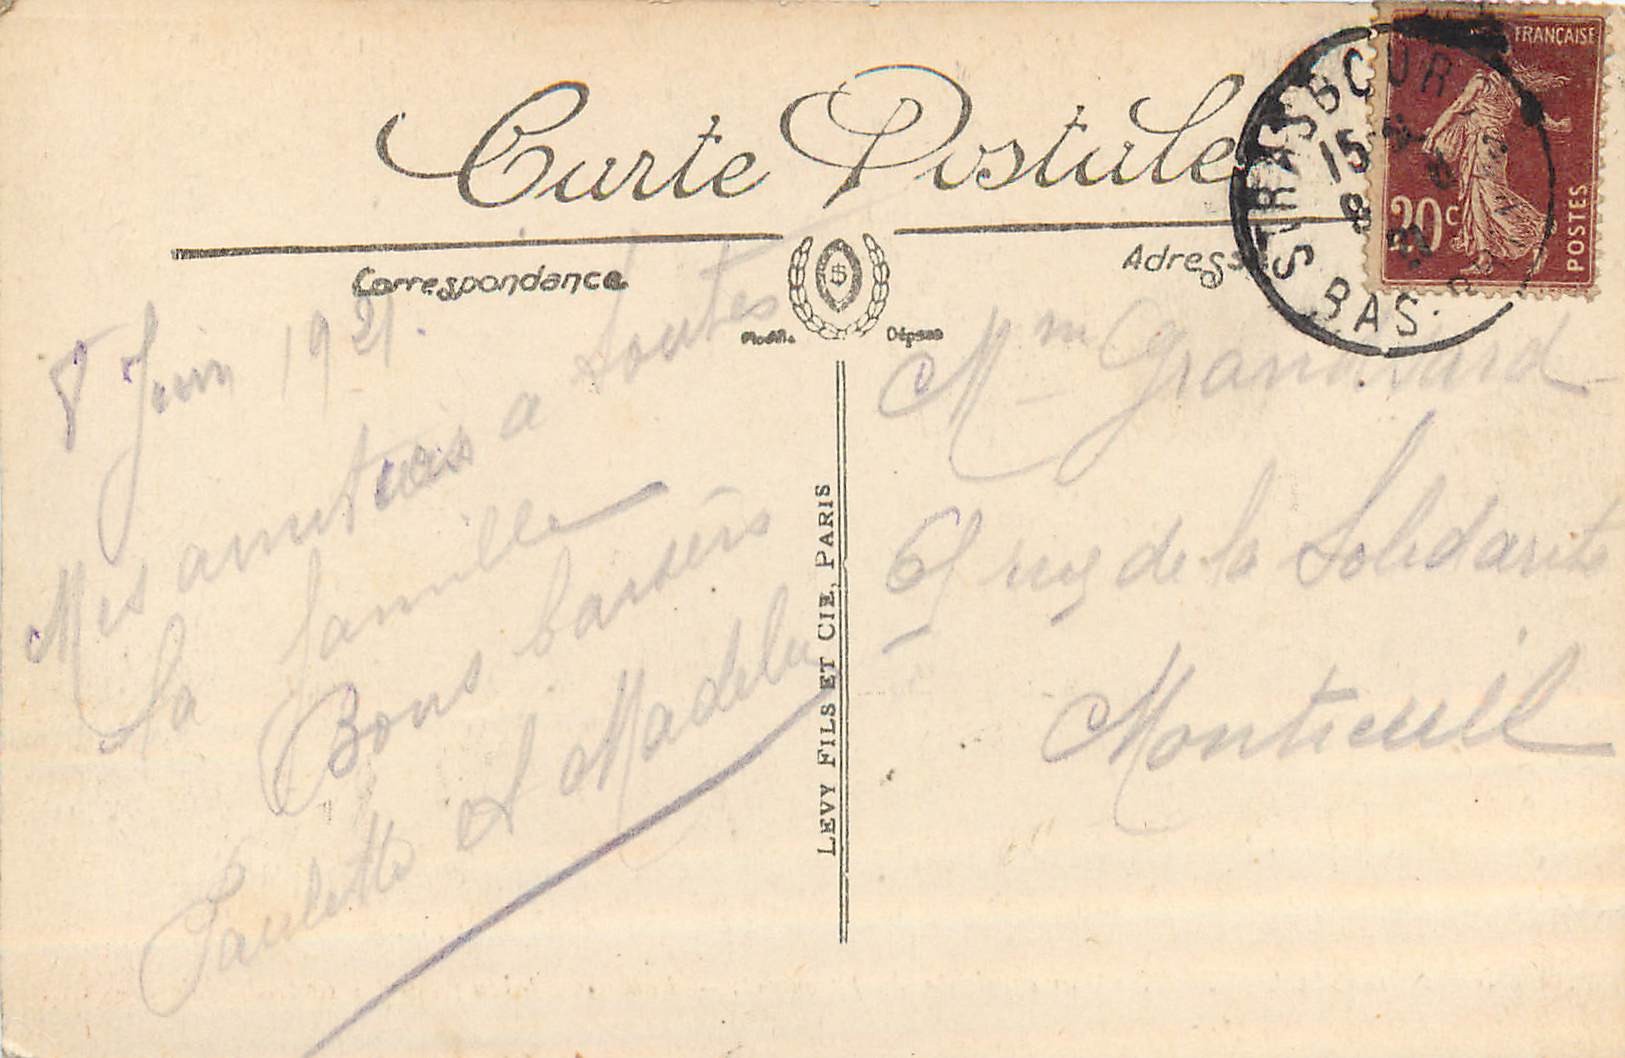 Carte Postale
Correspondance
Adresse
Modèle Déposé
FRANÇAISE
20c
POSTES
STRASBOUR
15
8
21
BAS
8 Juin 1921.
Mes amitiés a toutes
la famille
Bons baisers
Paulette et Madeleine
LEVY FILS ET CIE, PARIS
Mme Grandvard
61 rue de la Solidarite
Montreuil